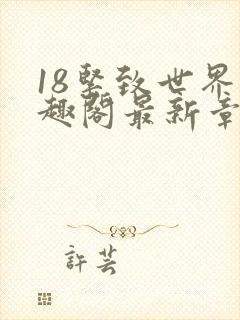 18堅致世界
趣閣最新章
許芸